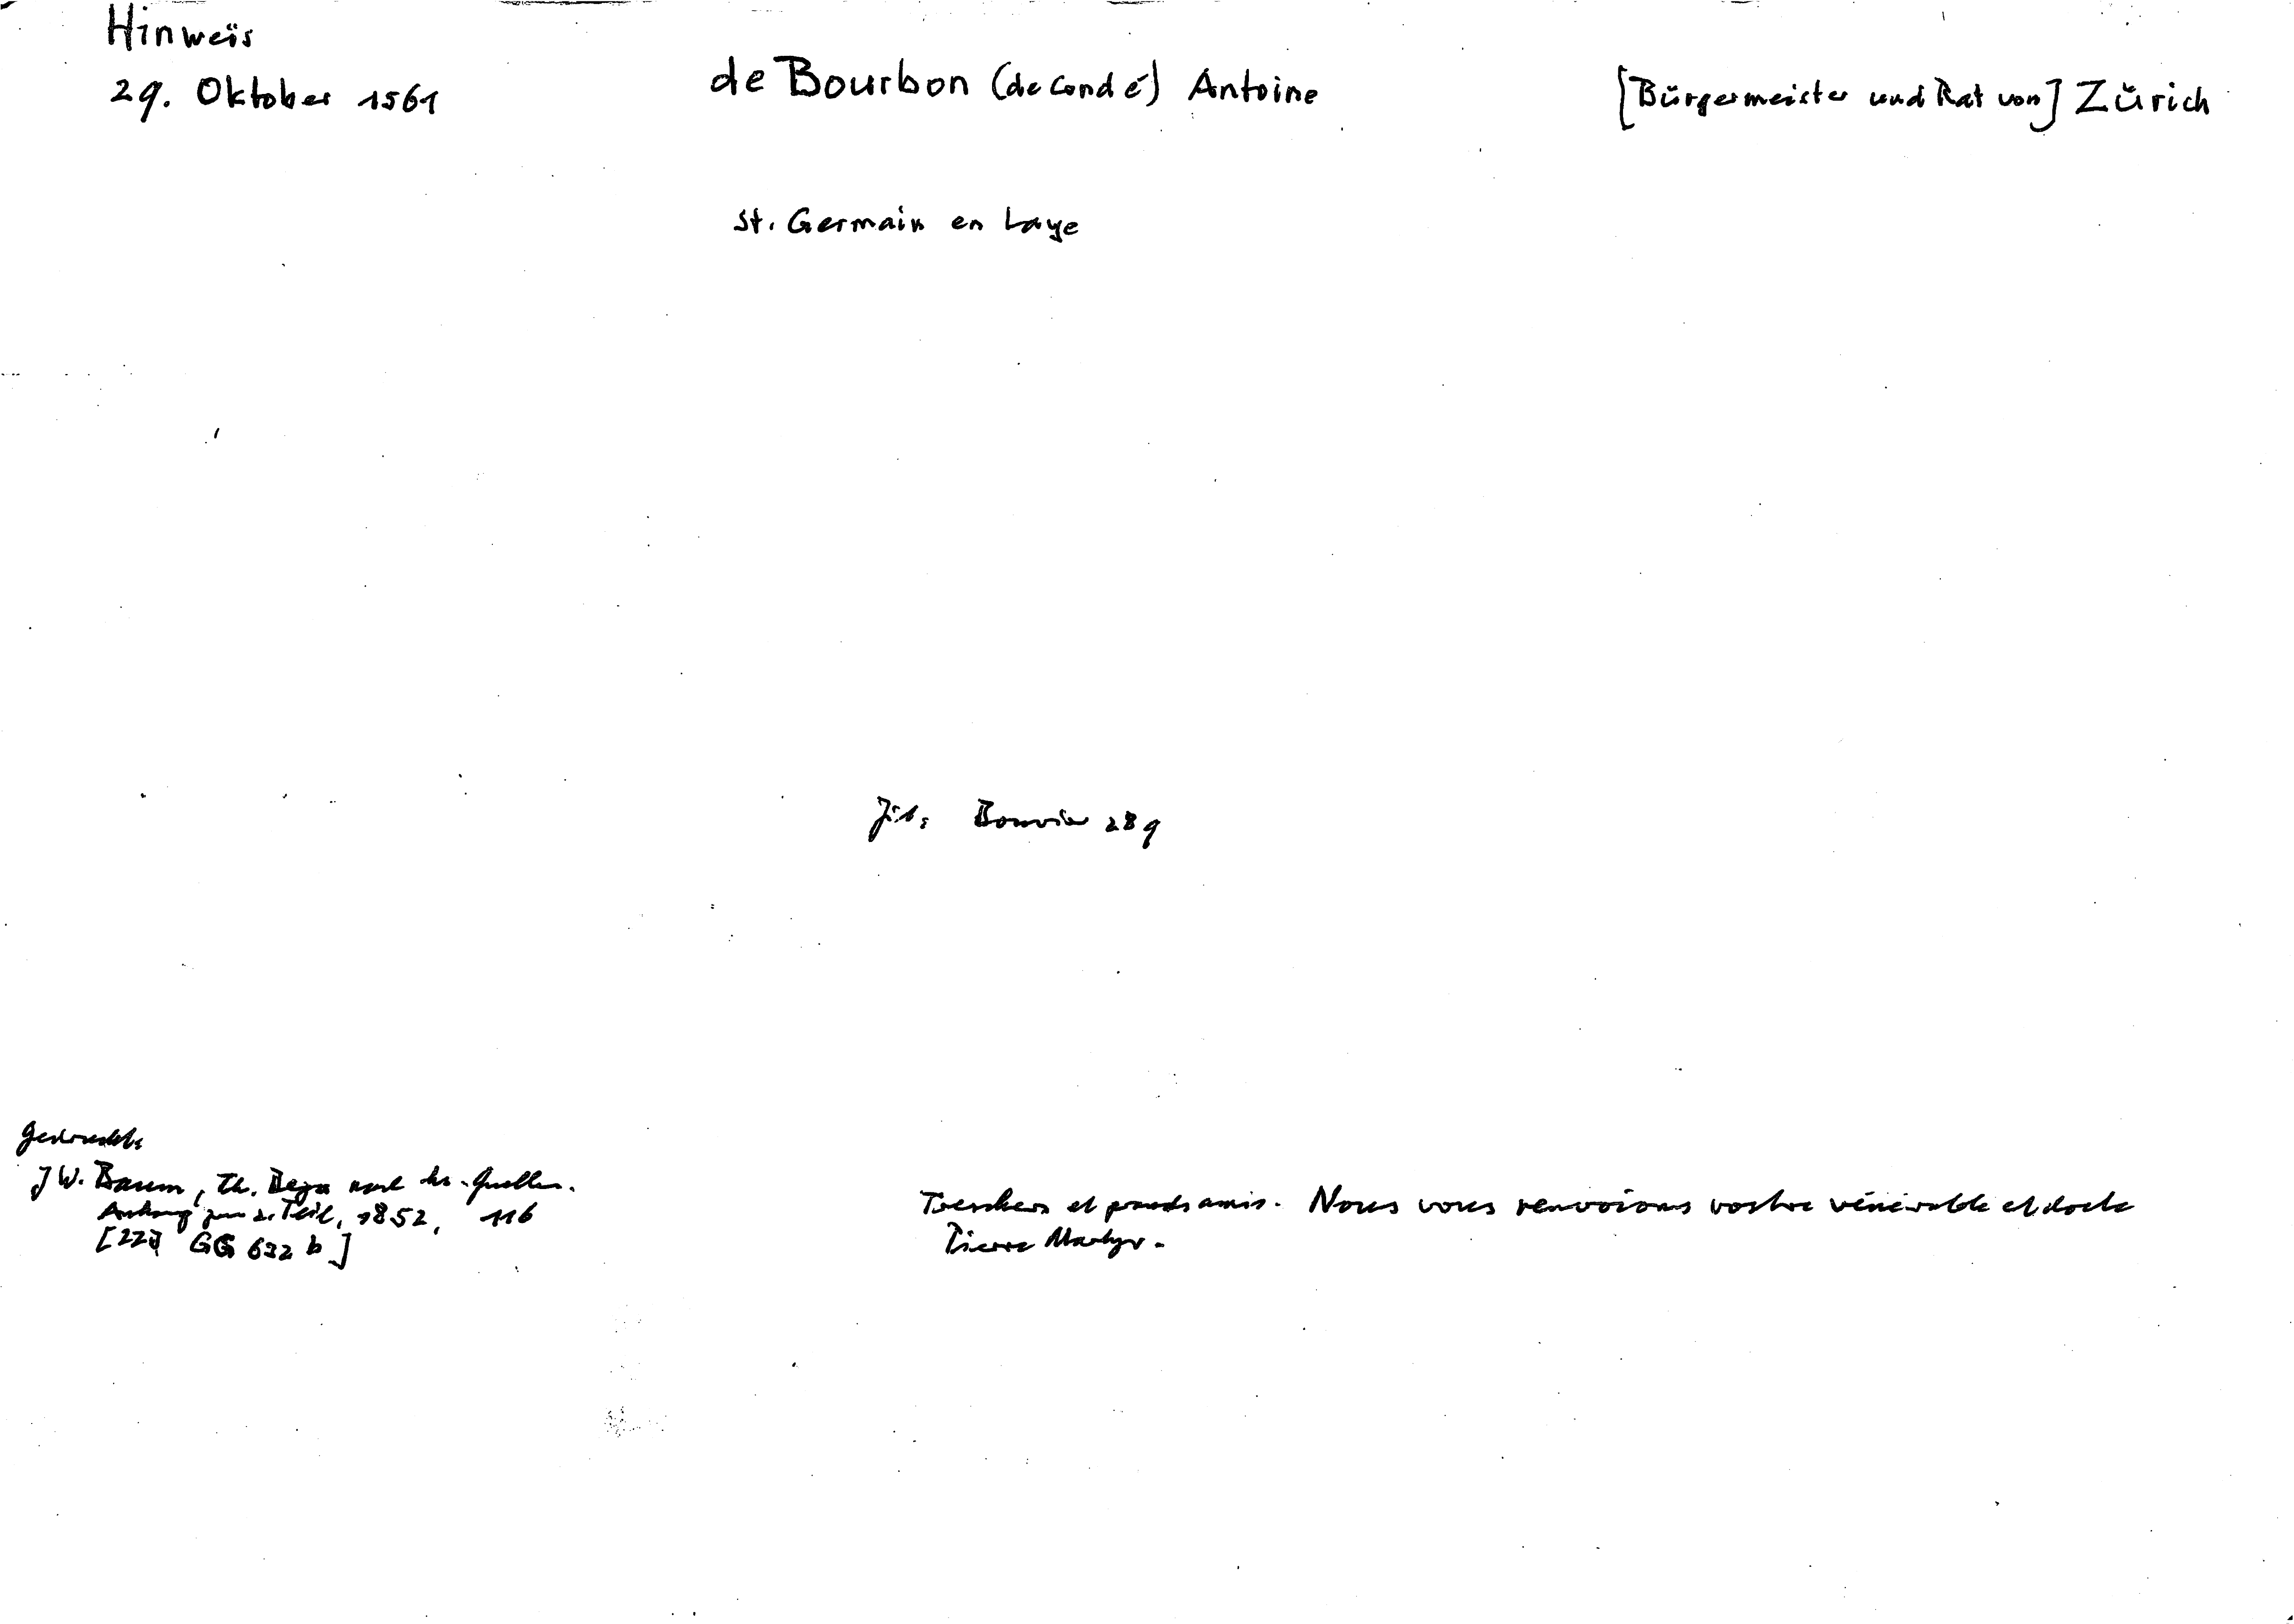 Hinweis
29. Oktober 1561
de Bourbon (de Condé) Antoine
[Bürgermeister und Rat von] Zürich
St. Germain en Laye
Zit: Bouvier 289
Gedruckt:
J W. Baum, Th. Beza nach hs. Quellen.
Anhang zum 2. Teil, 1852, 116
[ZZ GG 632 b]
Treschers et grands amis. Nous vous renvoions vostre vénérable et docte
Pierre Martyr.